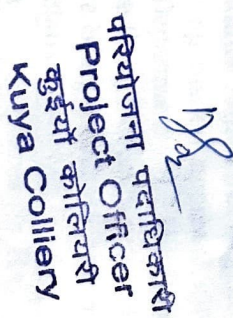 परियोजना पदाधिकारी
Project Officer
कुइयाँ कोलियरी
Kuya Colliery